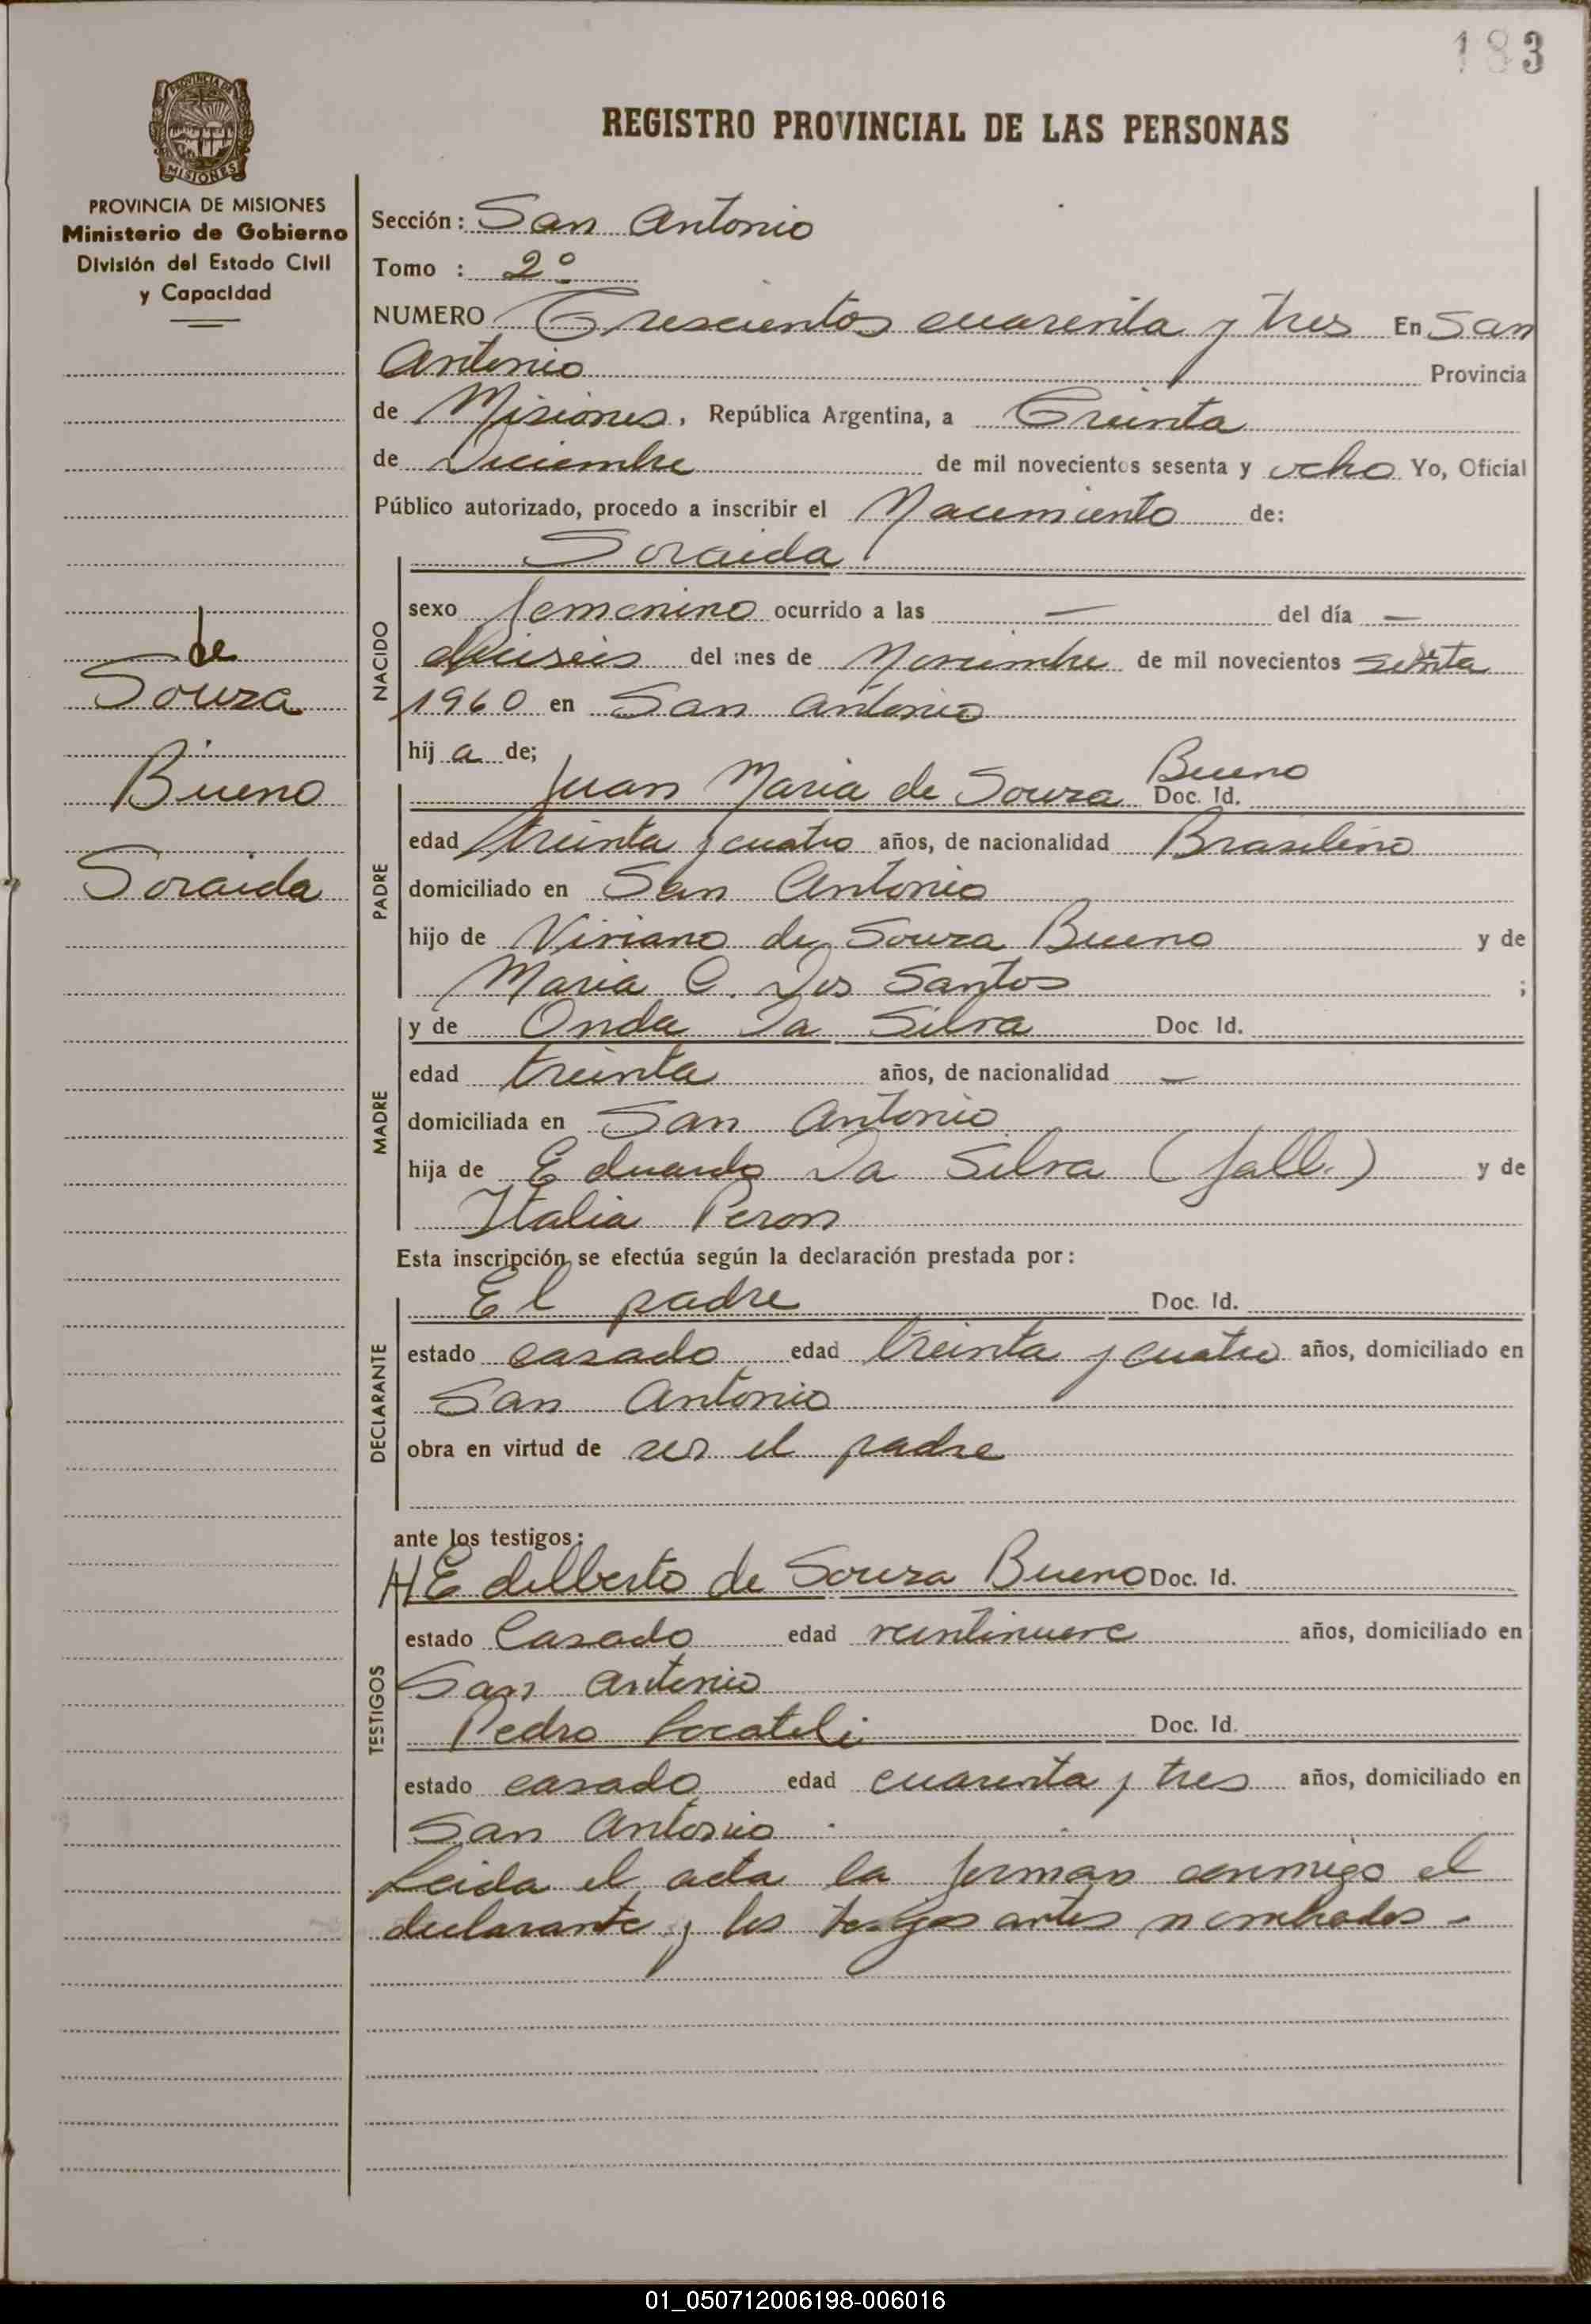 183
PROVINCIA DE MISIONES
Ministerio de Gobierno
División del Estado Civil
y Capacidad
REGISTRO PROVINCIAL DE LAS PERSONAS
Sección: San Antonio
Tomo : 2º
NUMERO Trescientos cuarenta y tres En San
Antonio Provincia
de Misiones, República Argentina, a Treinta
de Diciembre de mil novecientos sesenta y ocho Yo, Oficial
Público autorizado, procedo a inscribir el Nacimiento de:
Soraida
NACIDO
sexo femenino ocurrido a las — del día —
dieiseis del mes de Noviembre de mil novecientos sesenta
1960 en San Antonio
hij a de;
de
Souza
Bueno
Soraida
PADRE
Juan Maria de Souza Bueno Doc. Id.
edad treinta y cuatro años, de nacionalidad Brasilero
domiciliado en San Antonio
hijo de Viviano de Souza Bueno y de
Maria C. Dos Santos ;
MADRE
y de Onda Da Silva Doc Id.
edad treinta años, de nacionalidad —
domiciliada en San Antonio
hija de Eduardo Da Silva (fall.) y de
Italia Peron
Esta inscripción se efectúa según la declaración prestada por:
DECLARANTE
El padre Doc. Id.
estado casado edad treinta y cuatro años, domiciliado en
San Antonio
obra en virtud de ser el padre
ante los testigos:
TESTIGOS
Edilberto de Souza Bueno Doc. Id.
estado Casado edad veintinueve años, domiciliado en
San Antonio
Pedro Locateli Doc. Id.
estado casado edad cuarenta y tres años, domiciliado en
San Antonio
Leida el acta la firman conmigo el
declarante y los testigos antes nombrados -
01_050712006198-006016